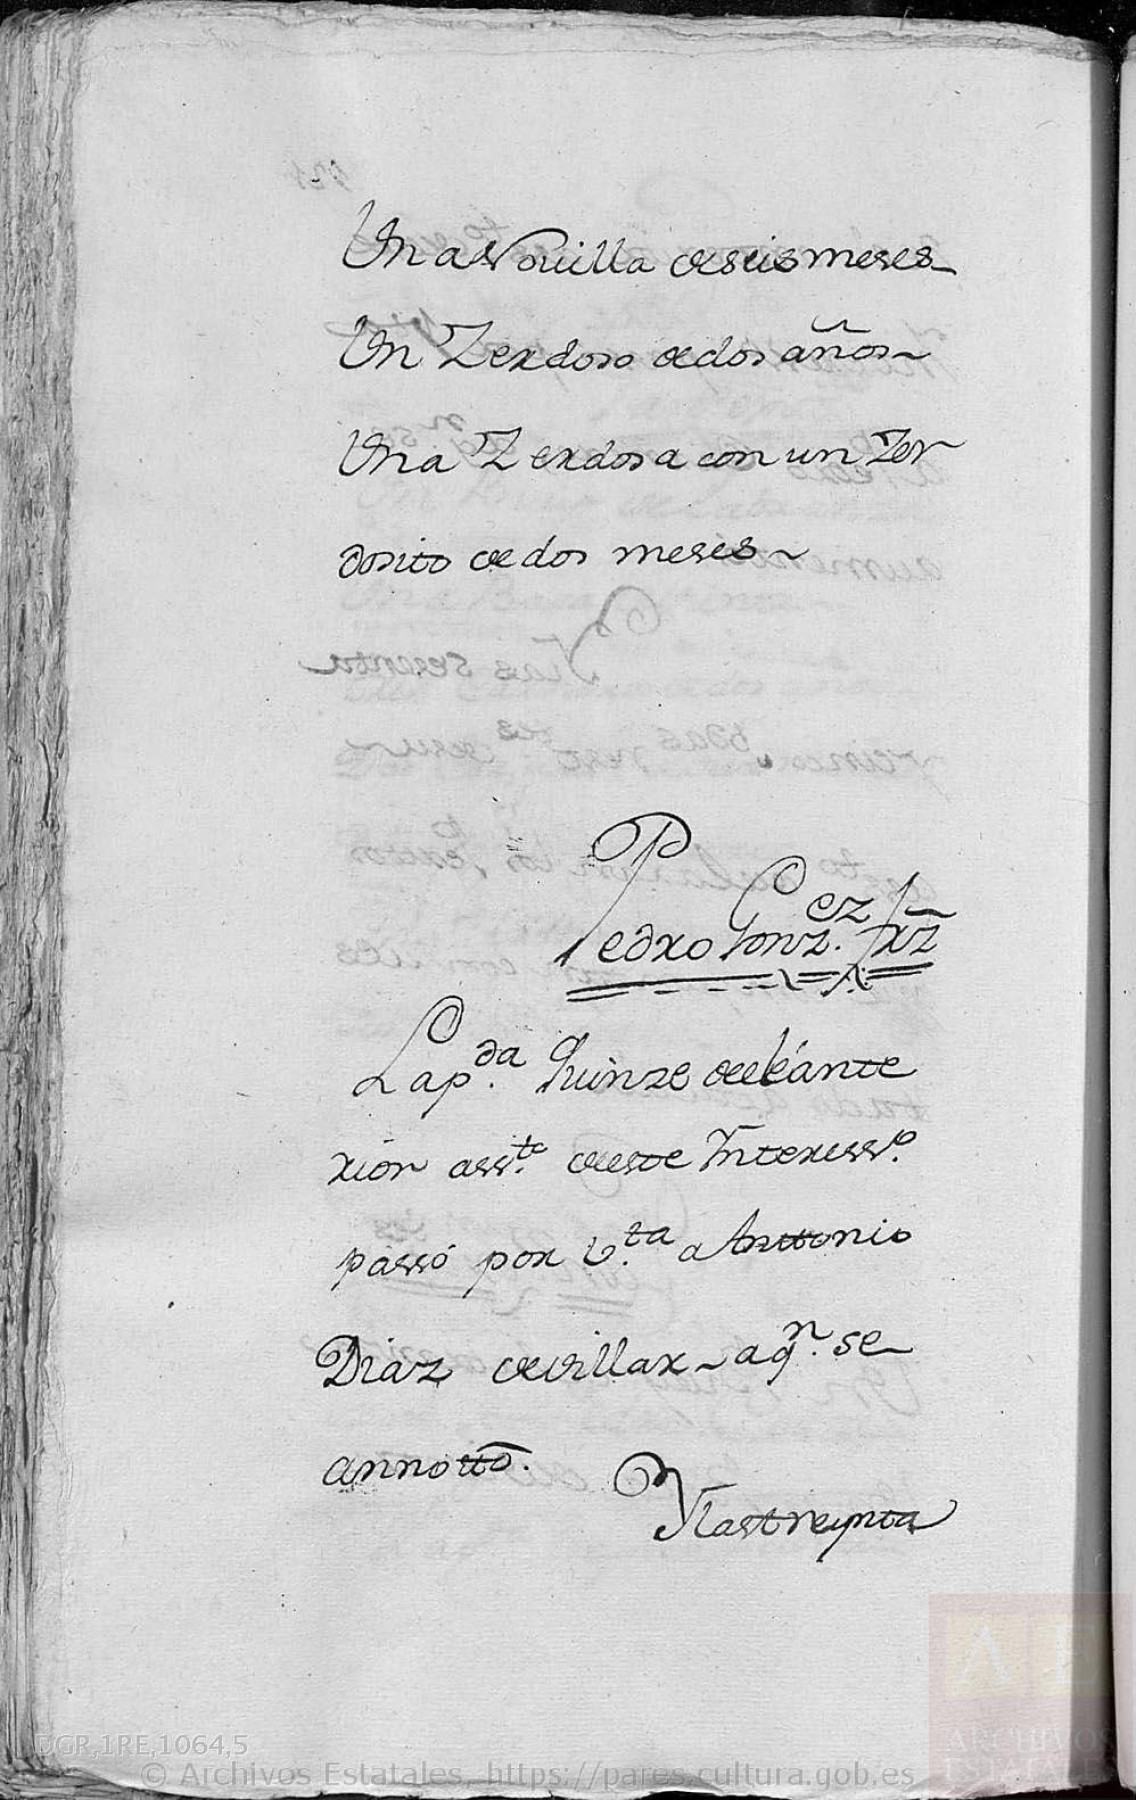 Una Novilla de seis meses
Un Zerdoso de dos años
Una Zerdosa con un Zer
dosito de dos meses
Pedro Gonz.ez frz
La p.da Quinze de el ánte
rior ass.to de este Interess.o
passó por v.ta a Anttonio
Diaz de villar a q.n se
annottó.
Y las treynta
DGR,1RE,1064,5
© Archivos Estatales, https://pares.cultura.gob.es
AE
ARCHIVOS
ESTATALES